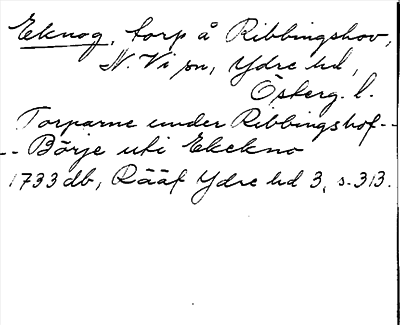 Eknog, torp å Ribbingshov,
N. Vi sn, Ydre hd,
Österg. l.
Torparne under Ribbingshof --
-- Börje uti Ekekno
1733 db, Rääf Ydre hd 3, s. 313.